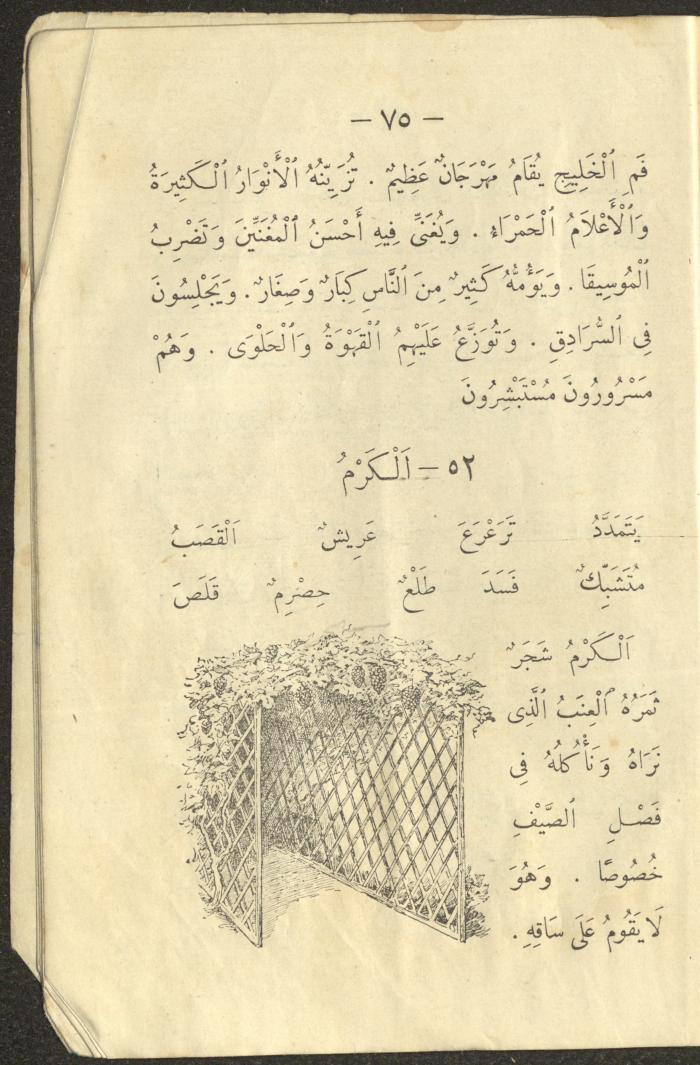 — ٧٥ —
فَمِ ٱلْخَلِيجِ يُقَامُ مَهْرَجَانٌ عَظِيمٌ . تُزَيِّنُهُ ٱلْأَنْوَارُ ٱلْكَثِيرَةُ
وَٱلْأَعْلَامُ ٱلْحَمْرَاءُ . وَيُغَنِّى فِيهِ أَحْسَنُ ٱلْمُغَنِّينَ وَتَضْرِبُ
ٱلْمُوسِيقَا . وَيَؤُمُّهُ كَثِيرٌ مِنَ ٱلنَّاسِ كِبَارٌ وَصِغَارٌ . وَيَجْلِسُونَ
فِى ٱلسُّرَادِقِ . وَتُوَزَّعُ عَلَيْهِمُ ٱلْقَهْوَةُ وَٱلْحَلْوَى . وَهُمْ
مَسْرُورُونَ مُسْتَبْشِرُونَ
٥٢ — اَلْكَرْمُ
يَتَمَدَّدُ تَرَعْرَعَ عَرِيشٌ اَلْقَصَبُ
مُتَشَبِّكٌ فَسَدَ طَلْعٌ حِصْرِمٌ قَلَصَ
اَلْكَرْمُ شَجَرٌ
ثَمَرُهُ ٱلْعِنَبُ ٱلَّذِى
نَرَاهُ وَنَأْكُلُهُ فِى
فَصْلِ ٱلصَّيْفِ
خُصُوصًا . وَهُوَ
لَا يَقُومُ عَلَى سَاقِهِ .